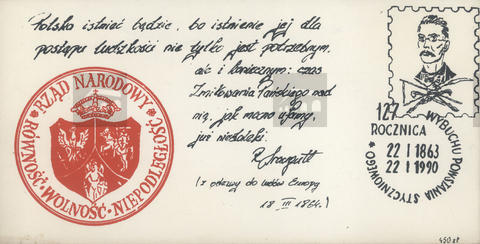 Polska istnieć będzie, bo istnienie jej dla
postępu ludzkości nie tylko jest potrzebnym,
ale i koniecznym: czas
Zmiłowania Pańskiego nad
nią, jak mono ufamy,
już niedaleki.
R Traugutt
(z odezwy do ludów Europy
18 III 1864.)
RZĄD NARODOWY
RÓWNOŚĆ * WOLNOŚĆ * NIEPODLEGŁOŚĆ
127 ROCZNICA
WYBUCHU POWSTANIA STYCZNIOWEGO
22 I 1863
22 I 1990
450 zł